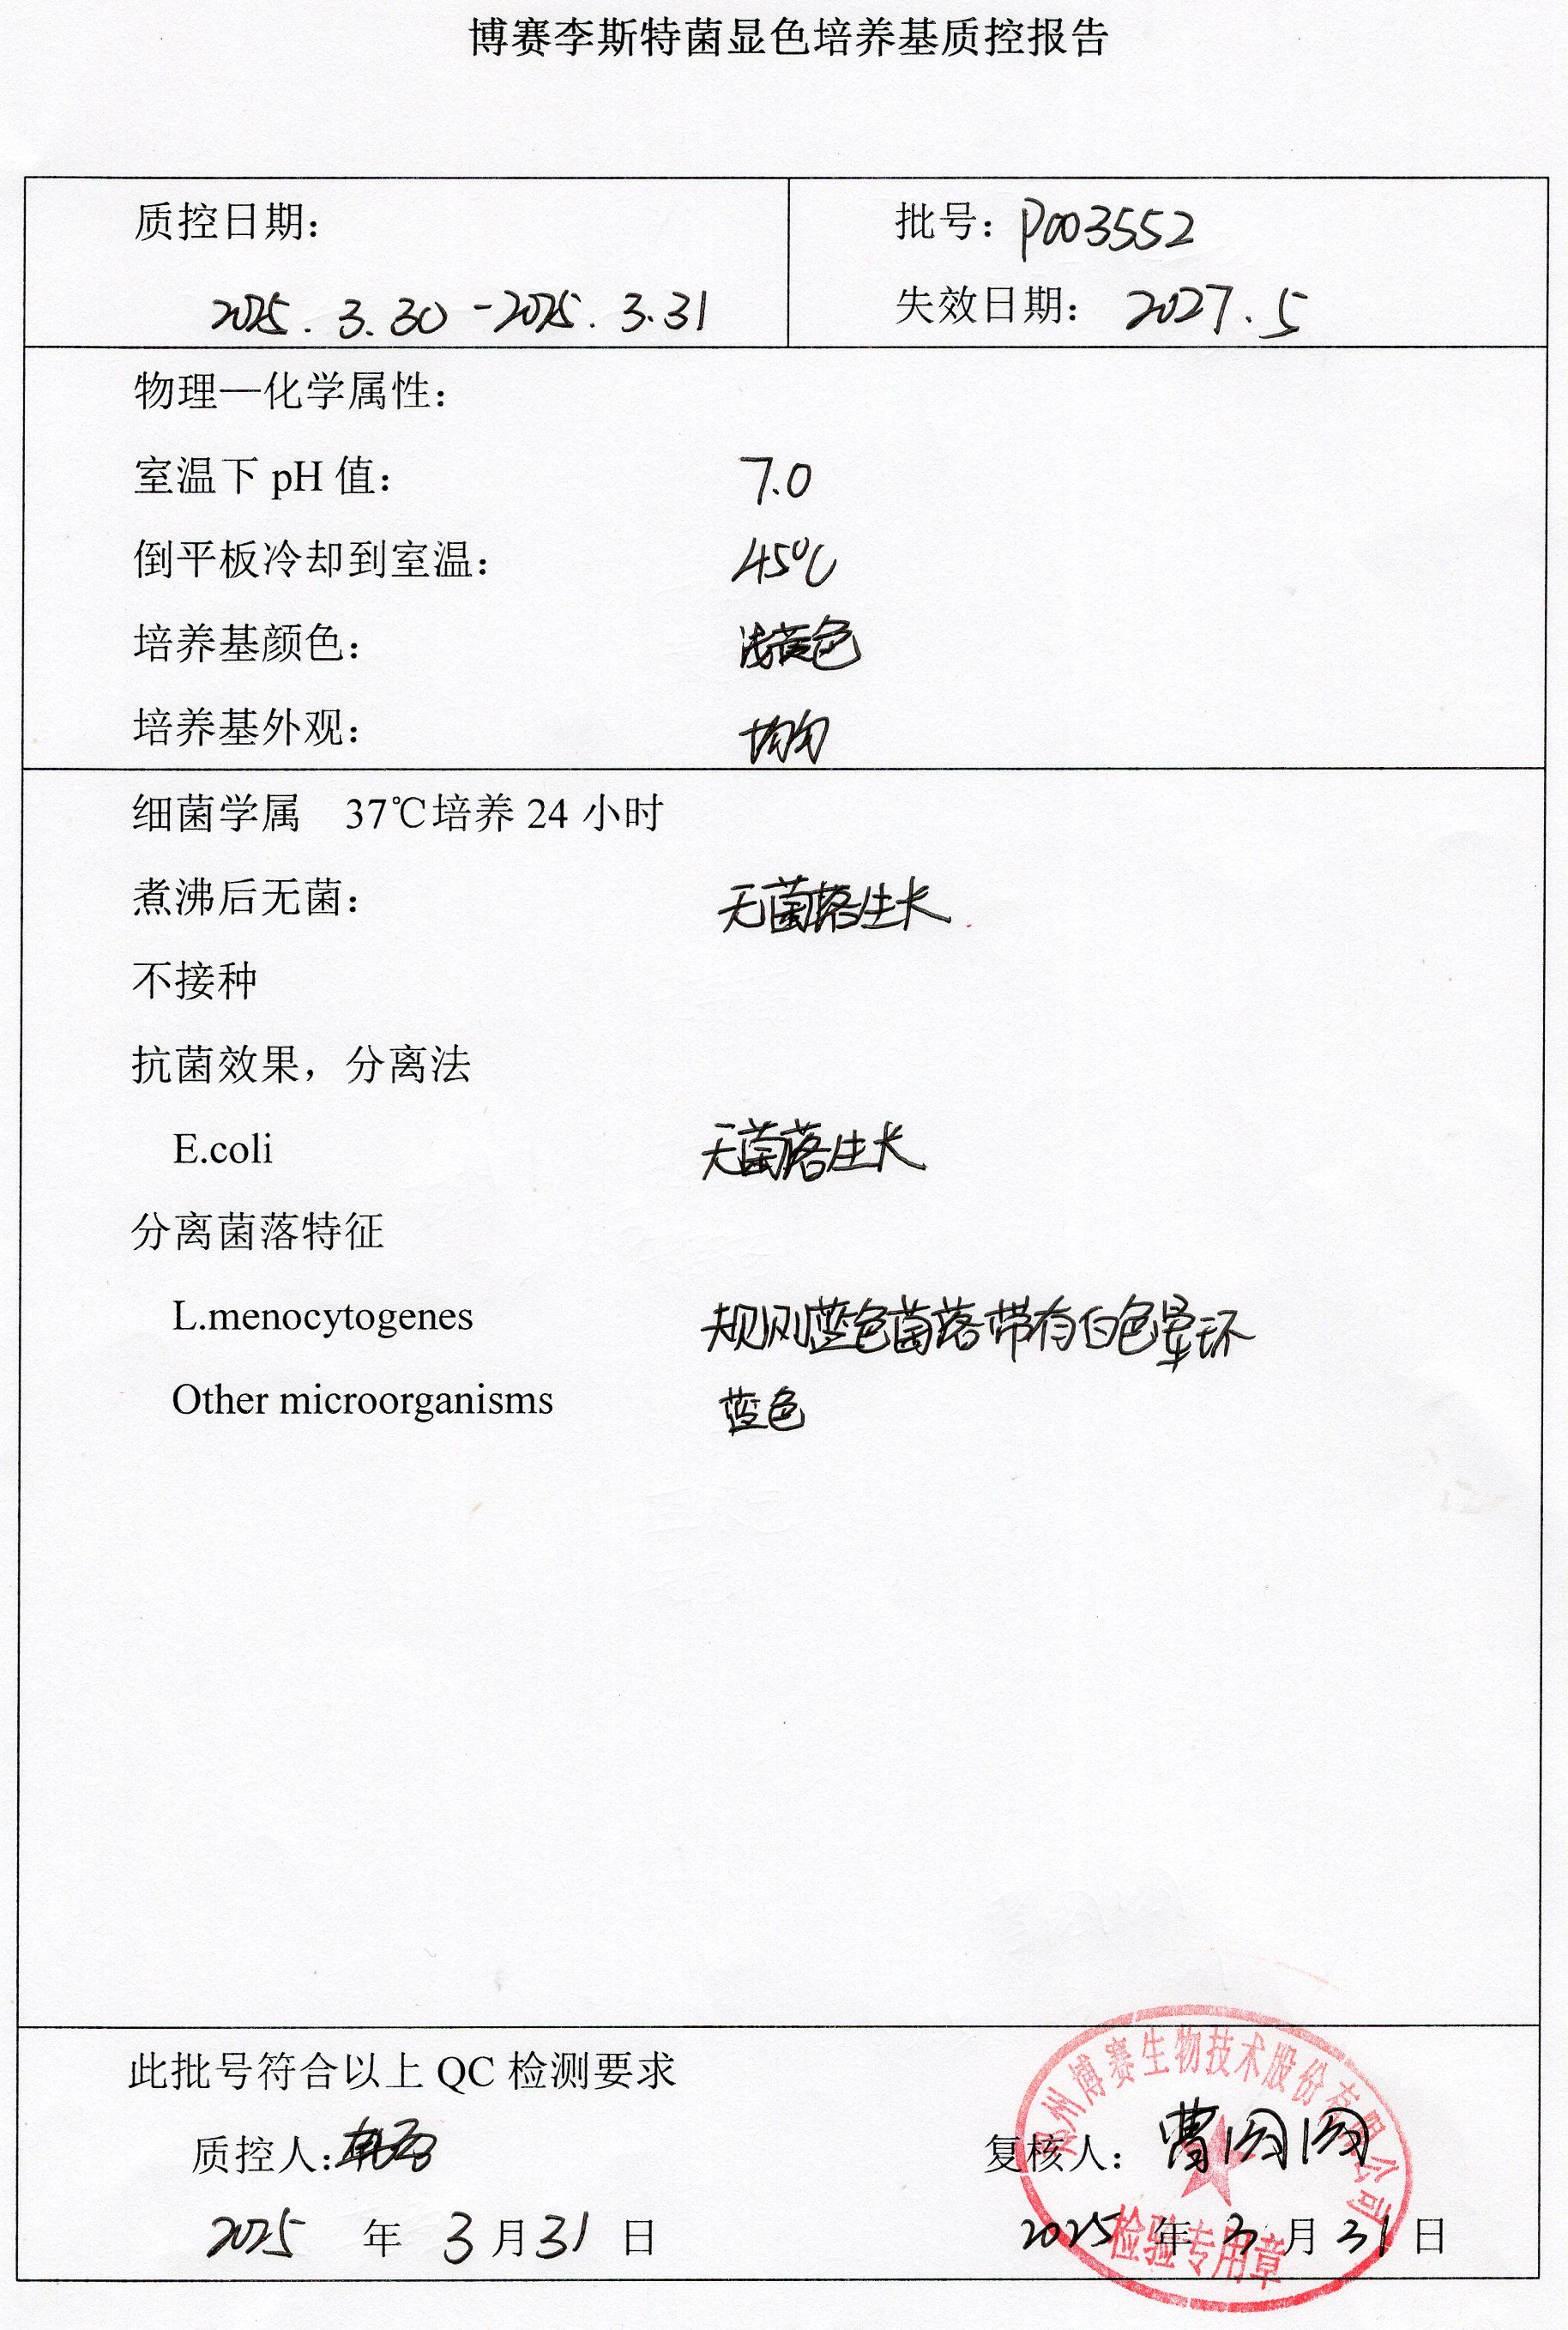 博赛李斯特菌显色培养基质控报告
质控日期:
2025.3.30-2025.3.31
批号: P003552
失效日期: 2027.5
物理—化学属性:
室温下 pH 值: 7.0
倒平板冷却到室温: 45℃
培养基颜色: 浅黄色
培养基外观: 均匀
细菌学属 37℃培养 24 小时
煮沸后无菌: 无菌落生长
不接种
抗菌效果，分离法
E.coli 无菌落生长
分离菌落特征
L.menocytogenes 规则蓝色菌落带有白色晕环
Other microorganisms 蓝色
此批号符合以上 QC 检测要求
质控人:
复核人: 曹闪闪
2025 年 3 月 31 日
2025 年 3 月 31 日
郑州博赛生物技术股份有限公司
检验专用章